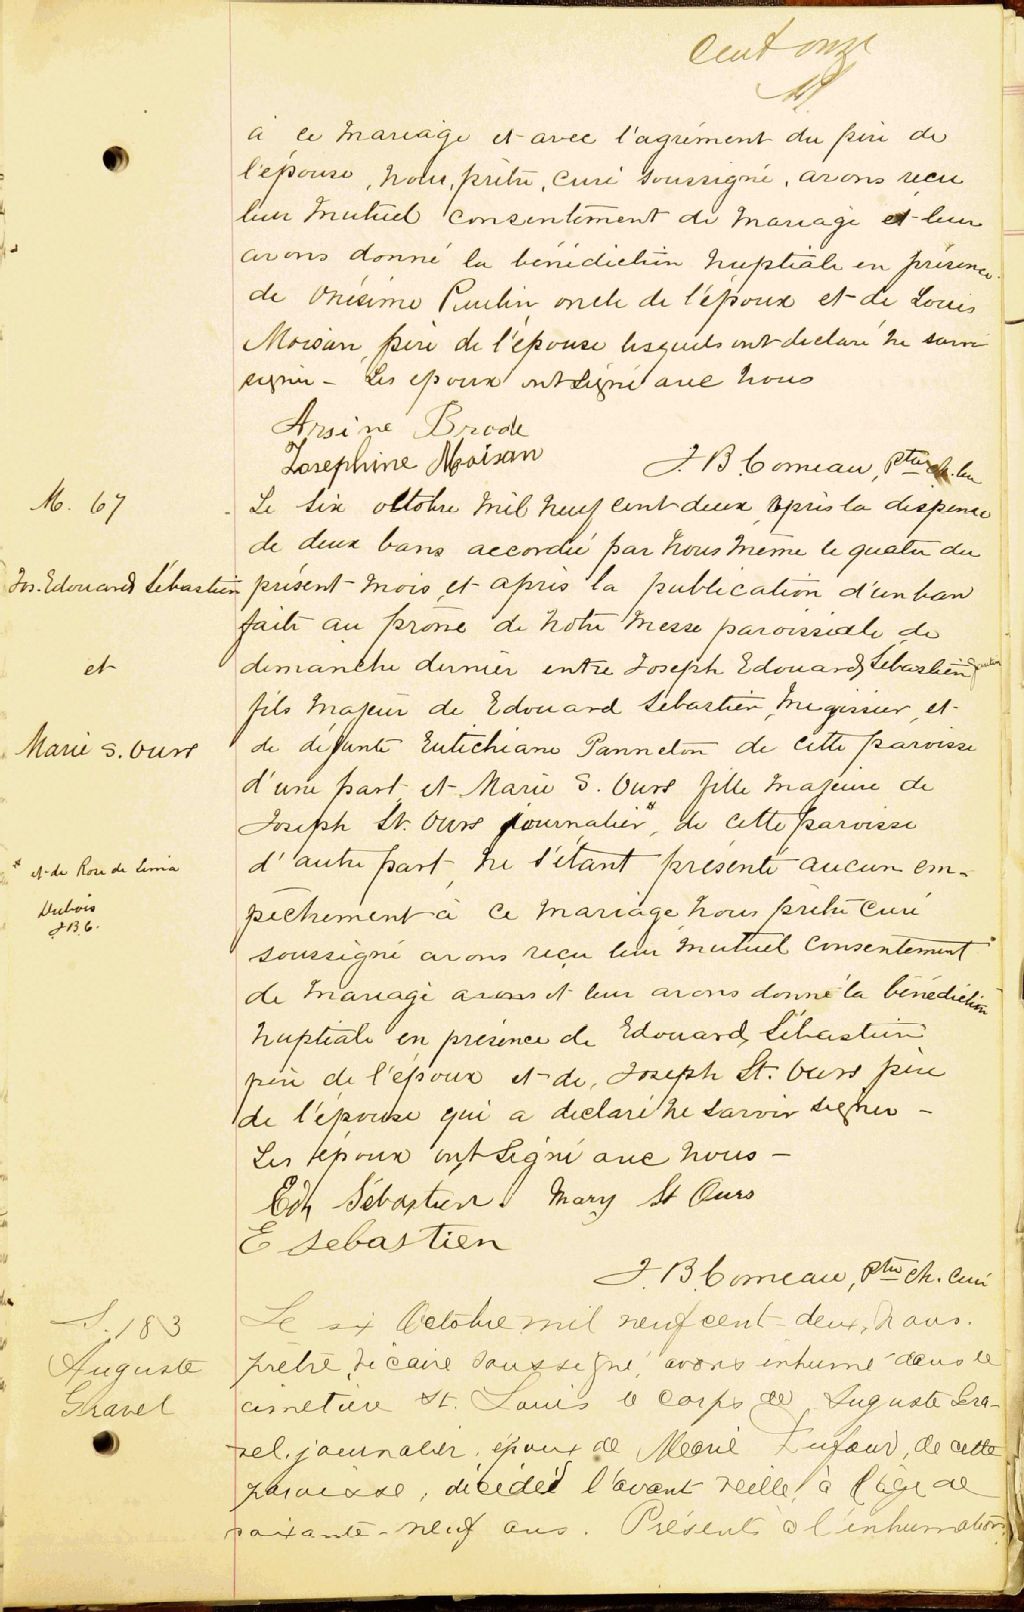 Cent onze
à ce mariage et avec l'agrément du père de
l'épouse, nous, prêtre, curé soussigné, avons reçu
leur mutuel consentement de mariage et leur
avons donné la bénédiction nuptiale en présence
de Onésime oncle de l'époux et de Louis
Moisan, père de l'épouse lesquels ont déclaré ne savoir
signer - Les époux ont signé avec nous
Arsène Brode
Josephine Moisan
J. B. Comeau, Ptre ch. cu
M. 67
Le six octobre mil neuf cent deux, après la dispense
de deux bans accordée par nous même le quatre du
Jos. Edouard Sébastien
présent mois et après la publication d'un ban
faite au prône de notre messe paroissiale de
et
dimanche dernier entre Joseph Edouard Sébastien
fils majeur de Edouard Sébastien, mégissier, et
Marie S. Ours
de défunte Eutichiane Panneton de cette paroisse
d'une part, et Marie S. Ours fille majeure de
Joseph St. Ours journalier*, de cette paroisse
* et de Rose de Lima
Dubois
J.B.C.
d'autre part, ne s'étant présenté aucun em-
pêchement à ce mariage nous prêtre curé
soussigné avons reçu leur mutuel consentement
de mariage avons et leur avons donné la bénédiction
nuptiale en présence de Edouard Sébastien
père de l'époux et de, Joseph St. Ours père
de l'épouse qui a déclaré ne savoir signer -
Les époux ont signé avec nous -
Ed. Sébastien. Mary St Ours
E Sebastien
J. B. Comeau, Ptre ch. curé
S. 183
Auguste
Gravel
Le six Octobre mil neuf cent deux, nous.
prêtre, vicaire soussigné, avons inhumé dans le
cimetière St. Louis le corps de Auguste Gra-
vel, journalier, époux de Marie Dufour, de cette
paroisse, décédé l'avant veille à l'âge de
soixante-neuf ans. Présents à l'inhumation